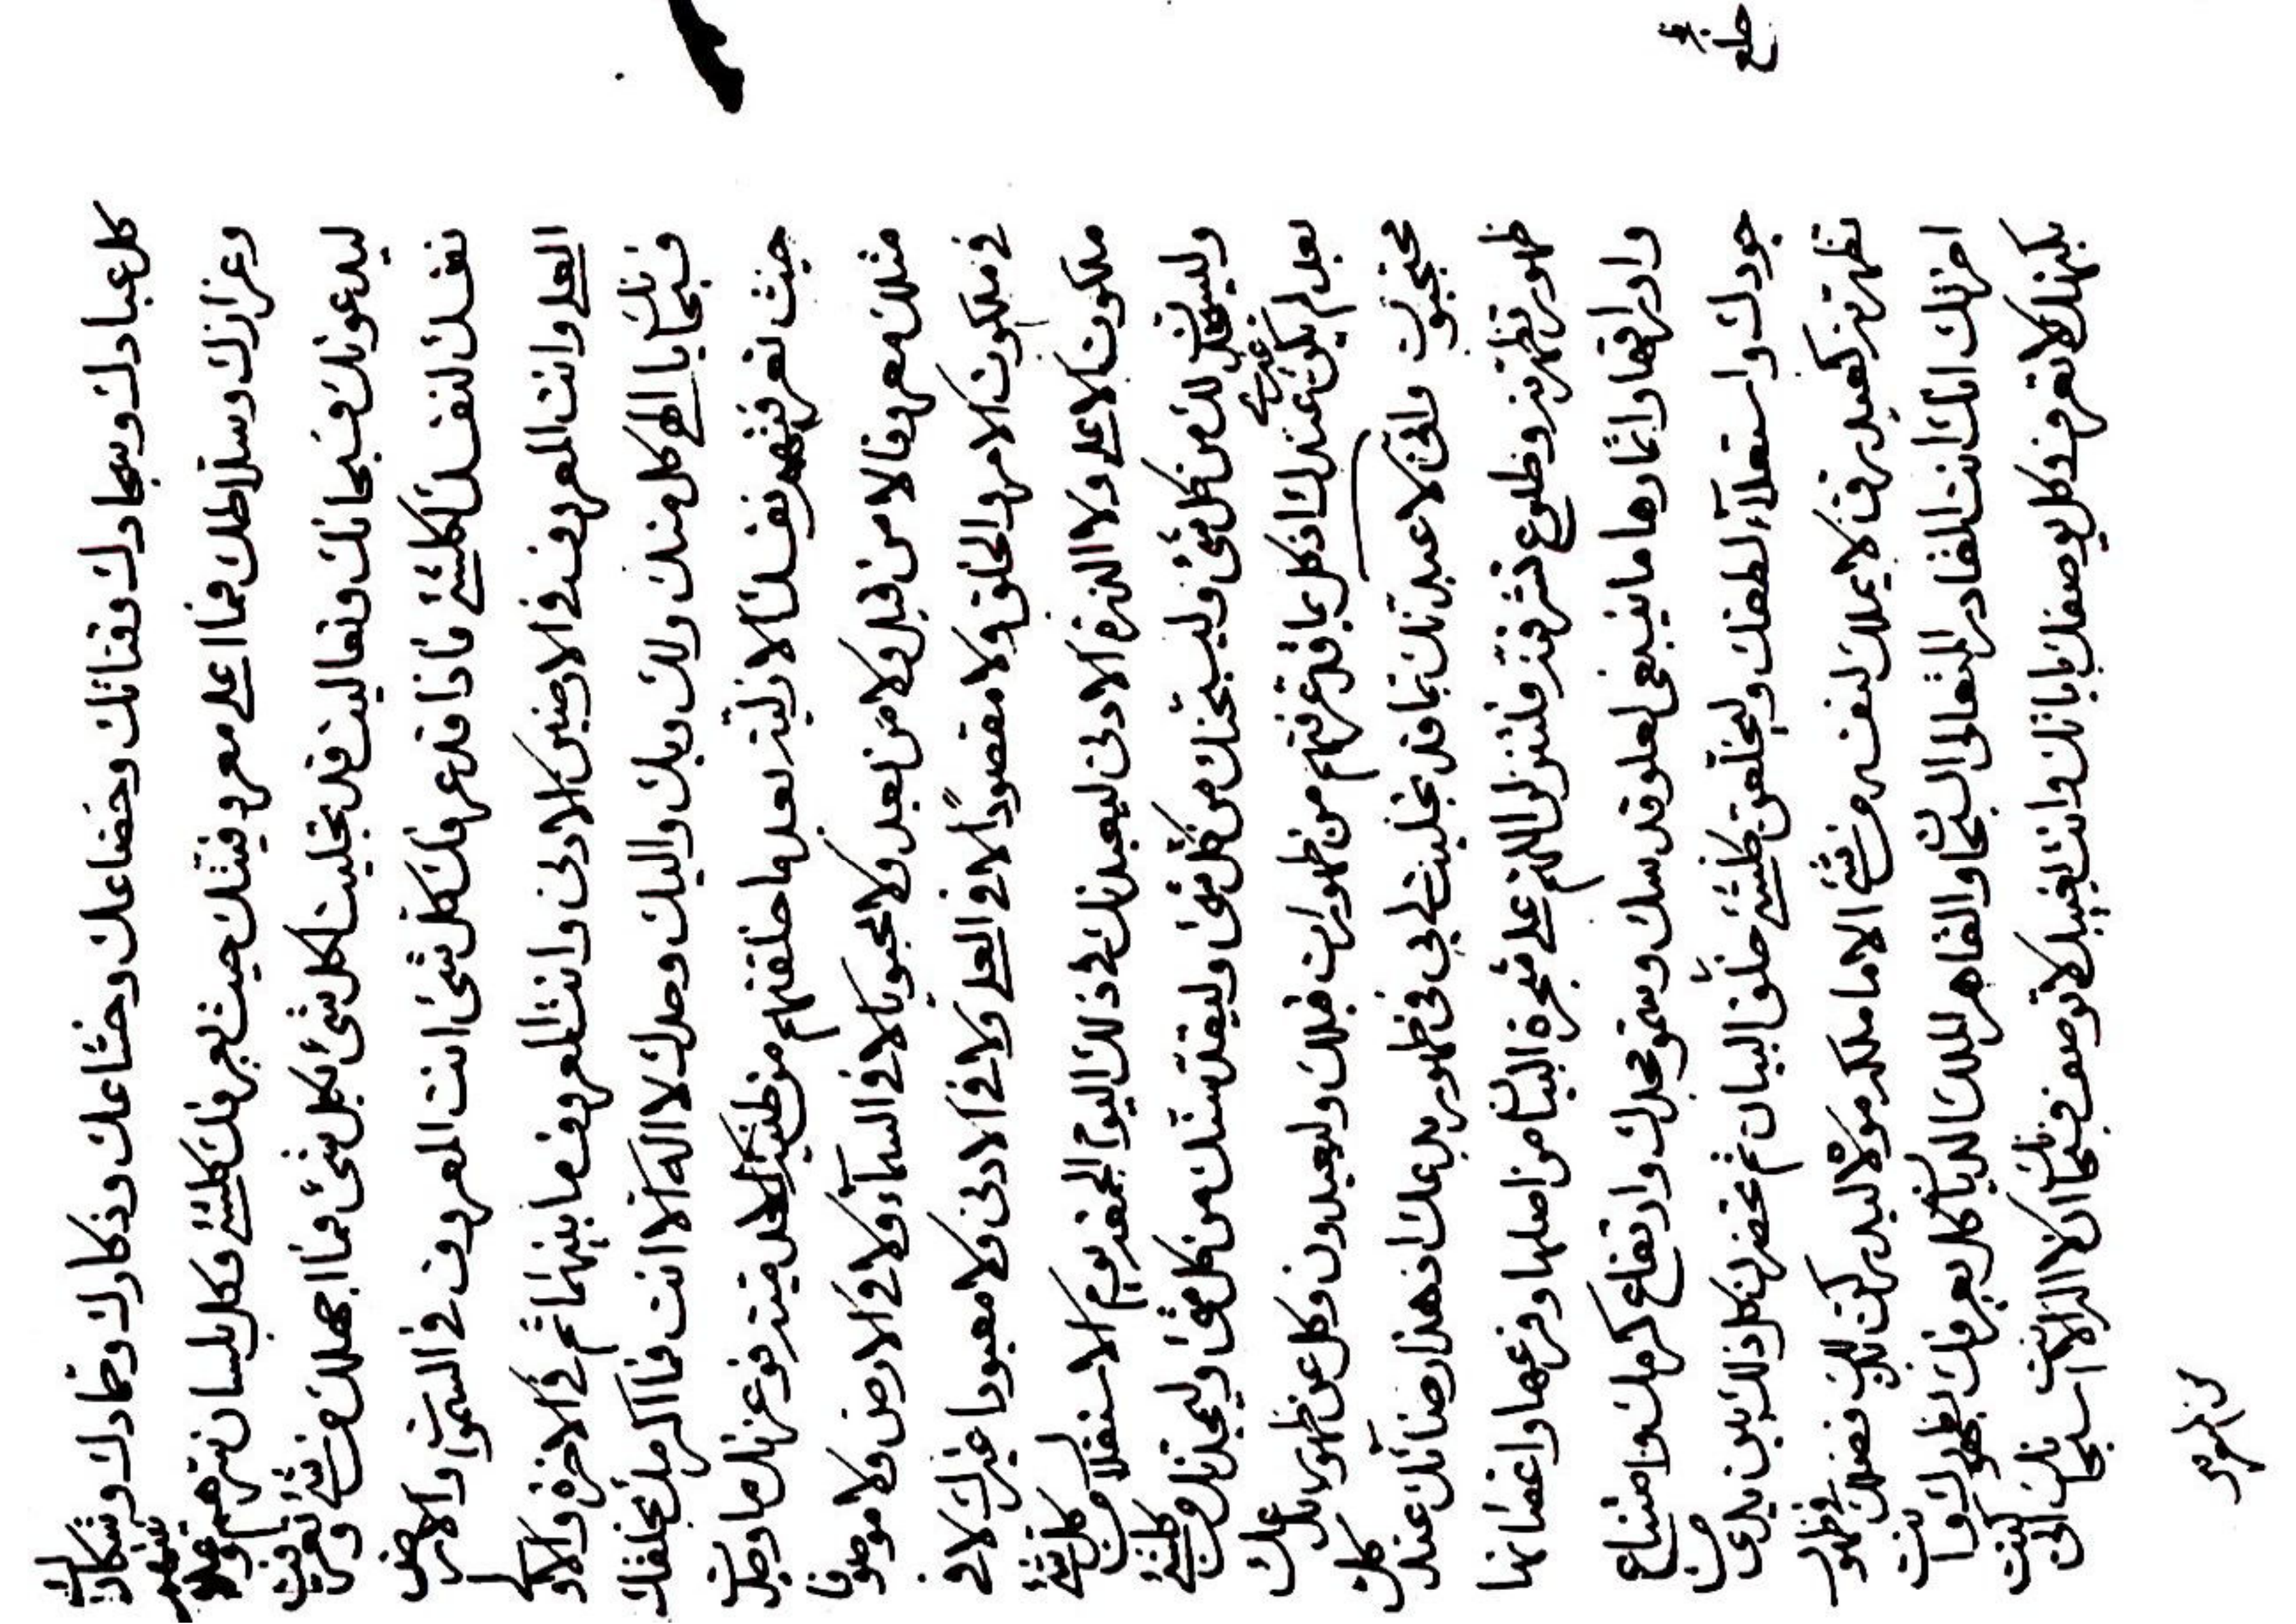 كل عبادك وسجادك وقنائك وخضاعك وخشاعك وذكارك وحمادك وشكارك
وعزازك وسلاطك فما اعلى معروفيتك حيث يعرفنك كلشئ وكل بلسان
ليدعونك فسبحانك وتعاليت قد تجليت لكل شئ بكل شئ فما اجهلك من شئ وتعرفت
نفسك لنفسك لكلشئ فاذا قد عرفك كل شئ انت المعروف في السموات والارض
العلى وانت المعروف في الارضين الادنى وانت المعروف ما بينهما ثم في الاخرة والاولى
فسبحانك يا الهي كل منك ولك وبك واليك وحدك لا اله الا انت فما اكرمك بخلقك
حيث تعرفتهم نفسك الازلية بعد ما خلقتهم من فوعزتك ما وجدت
مثلك معروفا لا من قبل ولا من بعد ولا محبوبا لا في السماء ولا في الارض ولا موصوفا
في ملكوت الامر والخلق ولا مقصودا لا في العلى ولا في الادنى ولا معبودا غيرك لا في
ملكوت الاعلى ولا الذرة الادنى ليعبدنك في ذلك اليوم الجمعة يوم الاستقلال من كل شئ
لك من كل شئ وليسبحنك من كل شئ وليقدسنك من كل شئ وليمجدنك من كلشئ
بعد لم يكن عندك غيرك اذ كل بما قد عرفتهم من ظهورات قبلك وليعبدون وكل عن ظهور بدعك
محتجبون وانني لا عبدتك بما قد تجليت لي بي في ظهور بدعك اذ هذا رضائك عند كل
ظهور تظهرنه وطلوع تشرقنه فلتنزلن اللهم على شجرة البيان من اصلها وفرعها واغصانها
واوراقها واثمارها ما ينبغي لعلو قدسك وسمو مجدك وارتفاع كرمك وامتناع
جودك واستعلاء لطفك ولتخلقن كلشئ خلق البيان ثم تحضرن كل ذلك بين يدي من
تظهرنه كعبد رق لا يملك لنفسه من شئ الا ما ملكه مولاه ليدركن فضلك في ظهور
اخرتك انك انت القادر المتعالى السبحان والقاهر الملك الديان كل يعرفنك بظهورك وانت
بكنهك لا تعرف وكل يوصفك باياتك وانت بغيبك لا توصف فسبحانك ان لا اله الا انت سبحانك اني كنت